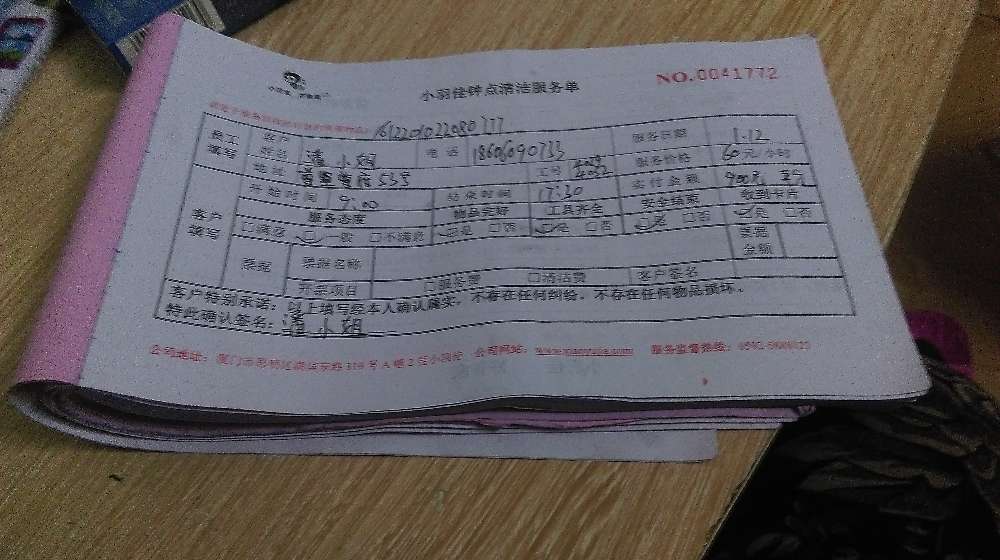 小羽佳钟点清洁服务单
NO.0041772
161220102208077
员工填写 客户姓名 潘小姐 电话 服务日期 1.12
地址 535 工号 4029 4032 服务价格 60元/小时
客户填写 开始时间 9:00 结束时间 17:30 实付金额
服务态度 物品完好 工具齐全 安全结束 收到卡片
□满意 □一般 □不满意 □是 □否 □是 □否 □是 □否 □是 □否
票据 票据名称 票据金额
开票项目 □服务费 □清洁费 客户签名
客户特别承诺：以上填写经本人确认属实，不存在任何纠纷，不存在任何物品损坏。
特此确认签名：潘小姐
公司地址： 公司网站：www.xiaoyujia.com 服务监督热线：